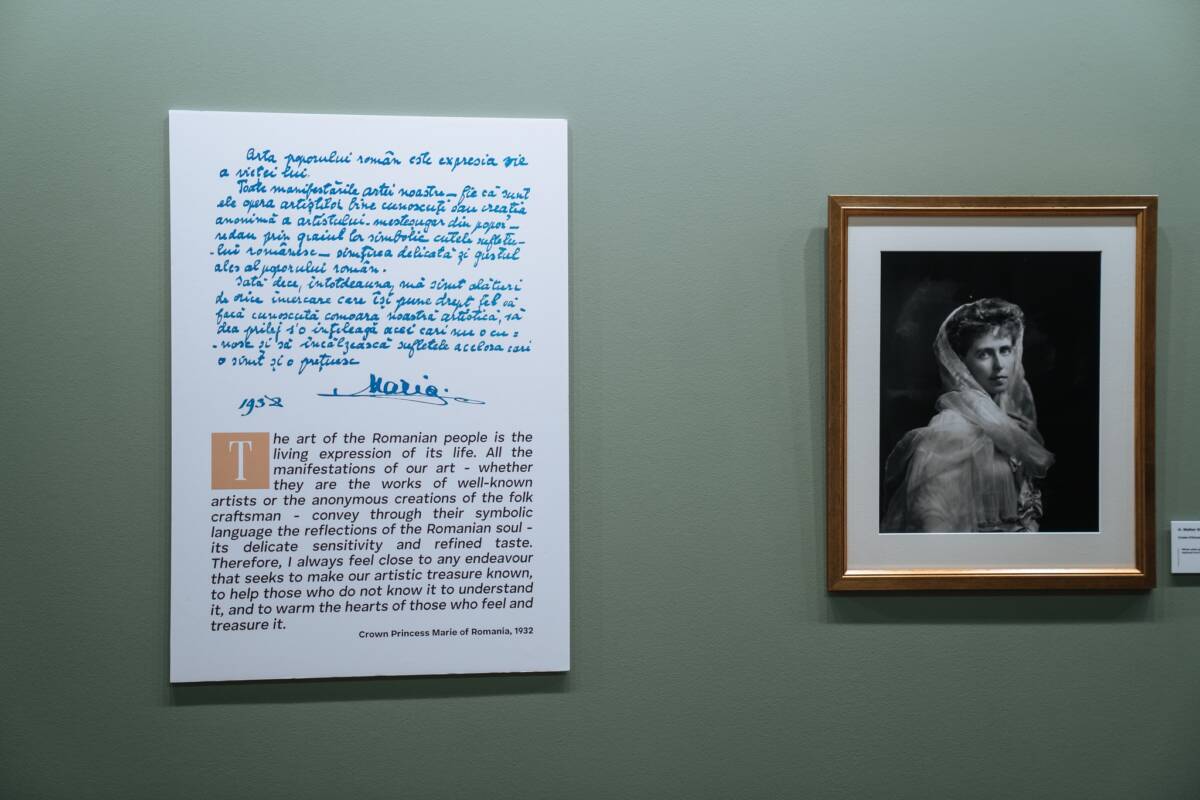 Arta poporului român este expresia vie
a vieței lui.
Toate manifestările artei noastre – fie că sunt
ele opera artiștilor bine cunoscuți sau creatia
anonimă a artistului-mesteșuger din popor –
redau prin graiul lor simbolic cutele sufletu-
-lui românesc – simțirea delicată și gustul
ales al poporului român.
Iată dece, întotdeauna, mă simt alături
de orice incercare care își pune drept țel să
facă cunoscută comoara noastră artistică, să
dea prilej s'o înțileagă acei cari nu o cu=
-nosc și să încălzească sufletele acelora cari
o simt și o prețuesc
Maria
1932
The art of the Romanian people is the
living expression of its life. All the
manifestations of our art - whether
they are the works of well-known
artists or the anonymous creations of the folk
craftsman - convey through their symbolic
language the reflections of the Romanian soul -
its delicate sensitivity and refined taste.
Therefore, I always feel close to any endeavour
that seeks to make our artistic treasure known,
to help those who do not know it to understand
it, and to warm the hearts of those who feel and
treasure it.
Crown Princess Marie of Romania, 1932